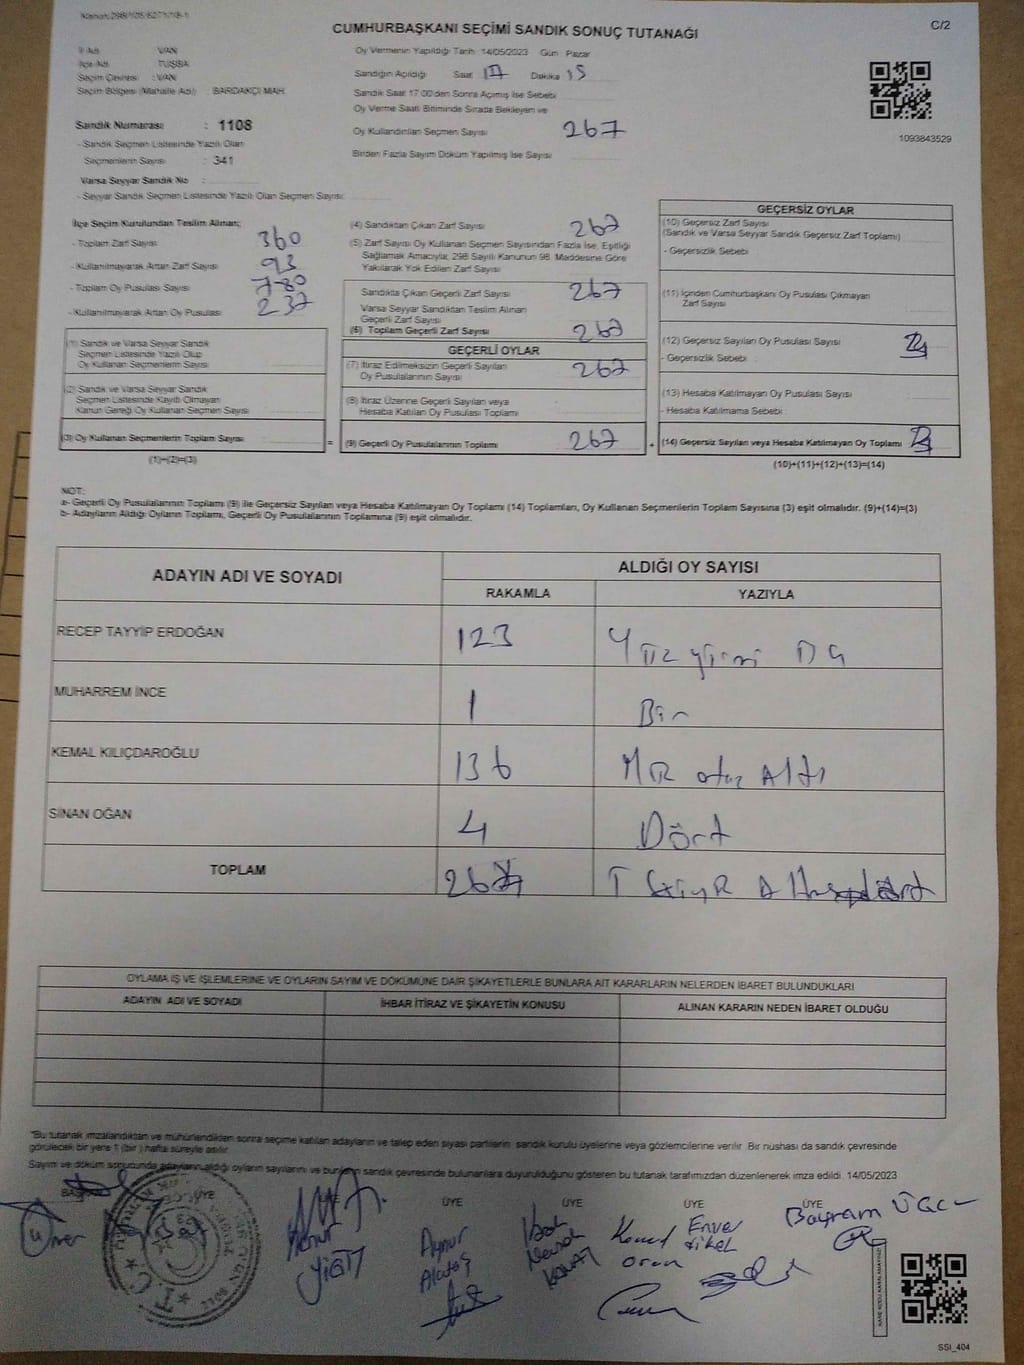 Kanun:298/105/6271/18-1
C/2
CUMHURBAŞKANI SEÇİMİ SANDIK SONUÇ TUTANAĞI
İl Adı : VAN
İlçe Adı : TUŞBA
Seçim Çevresi : VAN
Seçim Bölgesi (Mahalle Adı) : BARDAKÇI MAH.
Sandık Numarası : 1108
- Sandık Seçmen Listesinde Yazılı Olan
Seçmenlerin Sayısı : 341
Varsa Seyyar Sandık No :
- Seyyar Sandık Seçmen Listesinde Yazılı Olan Seçmen Sayısı:
Oy Vermenin Yapıldığı Tarih :14/05/2023 Gün Pazar
Sandığın Açıldığı Saat 17 Dakika 15
Sandık Saat 17:00'den Sonra Açılmış İse Sebebi
Oy Verme Saati Bitiminde Sırada Bekleyen ve
Oy Kullandırılan Seçmen Sayısı 267
Birden Fazla Sayım Döküm Yapılmış İse Sayısı
1093843529
İlçe Seçim Kurulundan Teslim Alınan;
- Toplam Zarf Sayısı 360
- Kullanılmayarak Artan Zarf Sayısı 93
- Toplam Oy Pusulası Sayısı 780
- Kullanılmayarak Artan Oy Pusulası 237
(1) Sandık ve Varsa Seyyar Sandık
Seçmen Listesinde Yazılı Olup
Oy Kullanan Seçmenlerin Sayısı
(2) Sandık ve Varsa Seyyar Sandık
Seçmen Listesinde Kayıtlı Olmayan
Kanun Gereği Oy Kullanan Seçmen Sayısı
(3) Oy Kullanan Seçmenlerin Toplam Sayısı
(1)+(2)=(3)
=
(4) Sandıktan Çıkan Zarf Sayısı 267
(5) Zarf Sayısı Oy Kullanan Seçmen Sayısından Fazla İse, Eşitliği
Sağlamak Amacıyla, 298 Sayılı Kanunun 98. Maddesine Göre
Yakılarak Yok Edilen Zarf Sayısı
Sandıkta Çıkan Geçerli Zarf Sayısı 267
Varsa Seyyar Sandıktan Teslim Alınan
Geçerli Zarf Sayısı
(6) Toplam Geçerli Zarf Sayısı 267
GEÇERLİ OYLAR
(7) İtiraz Edilmeksizin Geçerli Sayılan
Oy Pusulalarının Sayısı 267
(8) İtiraz Üzerine Geçerli Sayılan veya
Hesaba Katılan Oy Pusulası Toplamı
(9) Geçerli Oy Pusulalarının Toplamı 267
+
GEÇERSİZ OYLAR
(10) Geçersiz Zarf Sayısı
(Sandık ve Varsa Seyyar Sandık Geçersiz Zarf Toplamı)
- Geçersizlik Sebebi
(11) İçinden Cumhurbaşkanı Oy Pusulası Çıkmayan
Zarf Sayısı
(12) Geçersiz Sayılan Oy Pusulası Sayısı
- Geçersizlik Sebebi :
(13) Hesaba Katılmayan Oy Pusulası Sayısı
- Hesaba Katılmama Sebebi :
(14) Geçersiz Sayılan veya Hesaba Katılmayan Oy Toplamı
(10)+(11)+(12)+(13)=(14)
NOT:
a- Geçerli Oy Pusulalarının Toplamı (9) ile Geçersiz Sayılan veya Hesaba Katılmayan Oy Toplamı (14) Toplamları, Oy Kullanan Seçmenlerin Toplam Sayısına (3) eşit olmalıdır. (9)+(14)=(3)
b- Adayların Aldığı Oyların Toplamı, Geçerli Oy Pusulalarının Toplamına (9) eşit olmalıdır.
ADAYIN ADI VE SOYADI
ALDIĞI OY SAYISI
RAKAMLA YAZIYLA
RECEP TAYYİP ERDOĞAN 123 Yüz yirmi
MUHARREM İNCE 1 Bir
KEMAL KILIÇDAROĞLU 136 Yüz otuz Altı
SİNAN OĞAN 4 Dört
TOPLAM
OYLAMA İŞ VE İŞLEMLERİNE VE OYLARIN SAYIM VE DÖKÜMÜNE DAİR ŞİKAYETLERLE BUNLARA AİT KARARLARIN NELERDEN İBARET BULUNDUKLARI
ADAYIN ADI VE SOYADI İHBAR İTİRAZ VE ŞİKAYETİN KONUSU ALINAN KARARIN NEDEN İBARET OLDUĞU
"Bu tutanak imzalandıktan ve mühürlendikten sonra seçime katılan adayların ve talep eden siyasi partilerin sandık kurulu üyelerine veya gözlemcilerine verilir. Bir nüshası da sandık çevresinde
görülecek bir yere 1 (bir) hafta süreyle asılır.
Sayım ve döküm sonucunda adayların aldığı oyların sayılarını ve bunların sandık çevresinde bulunanlara duyurulduğunu gösteren bu tutanak tarafımızdan düzenlenerek imza edildi. 14/05/2023
ÜYE ÜYE ÜYE ÜYE ÜYE
Ömer
YİĞİT
Aynur
Enver
Bayram
KARE KODU KARALAMAYINIZ
SSI_404